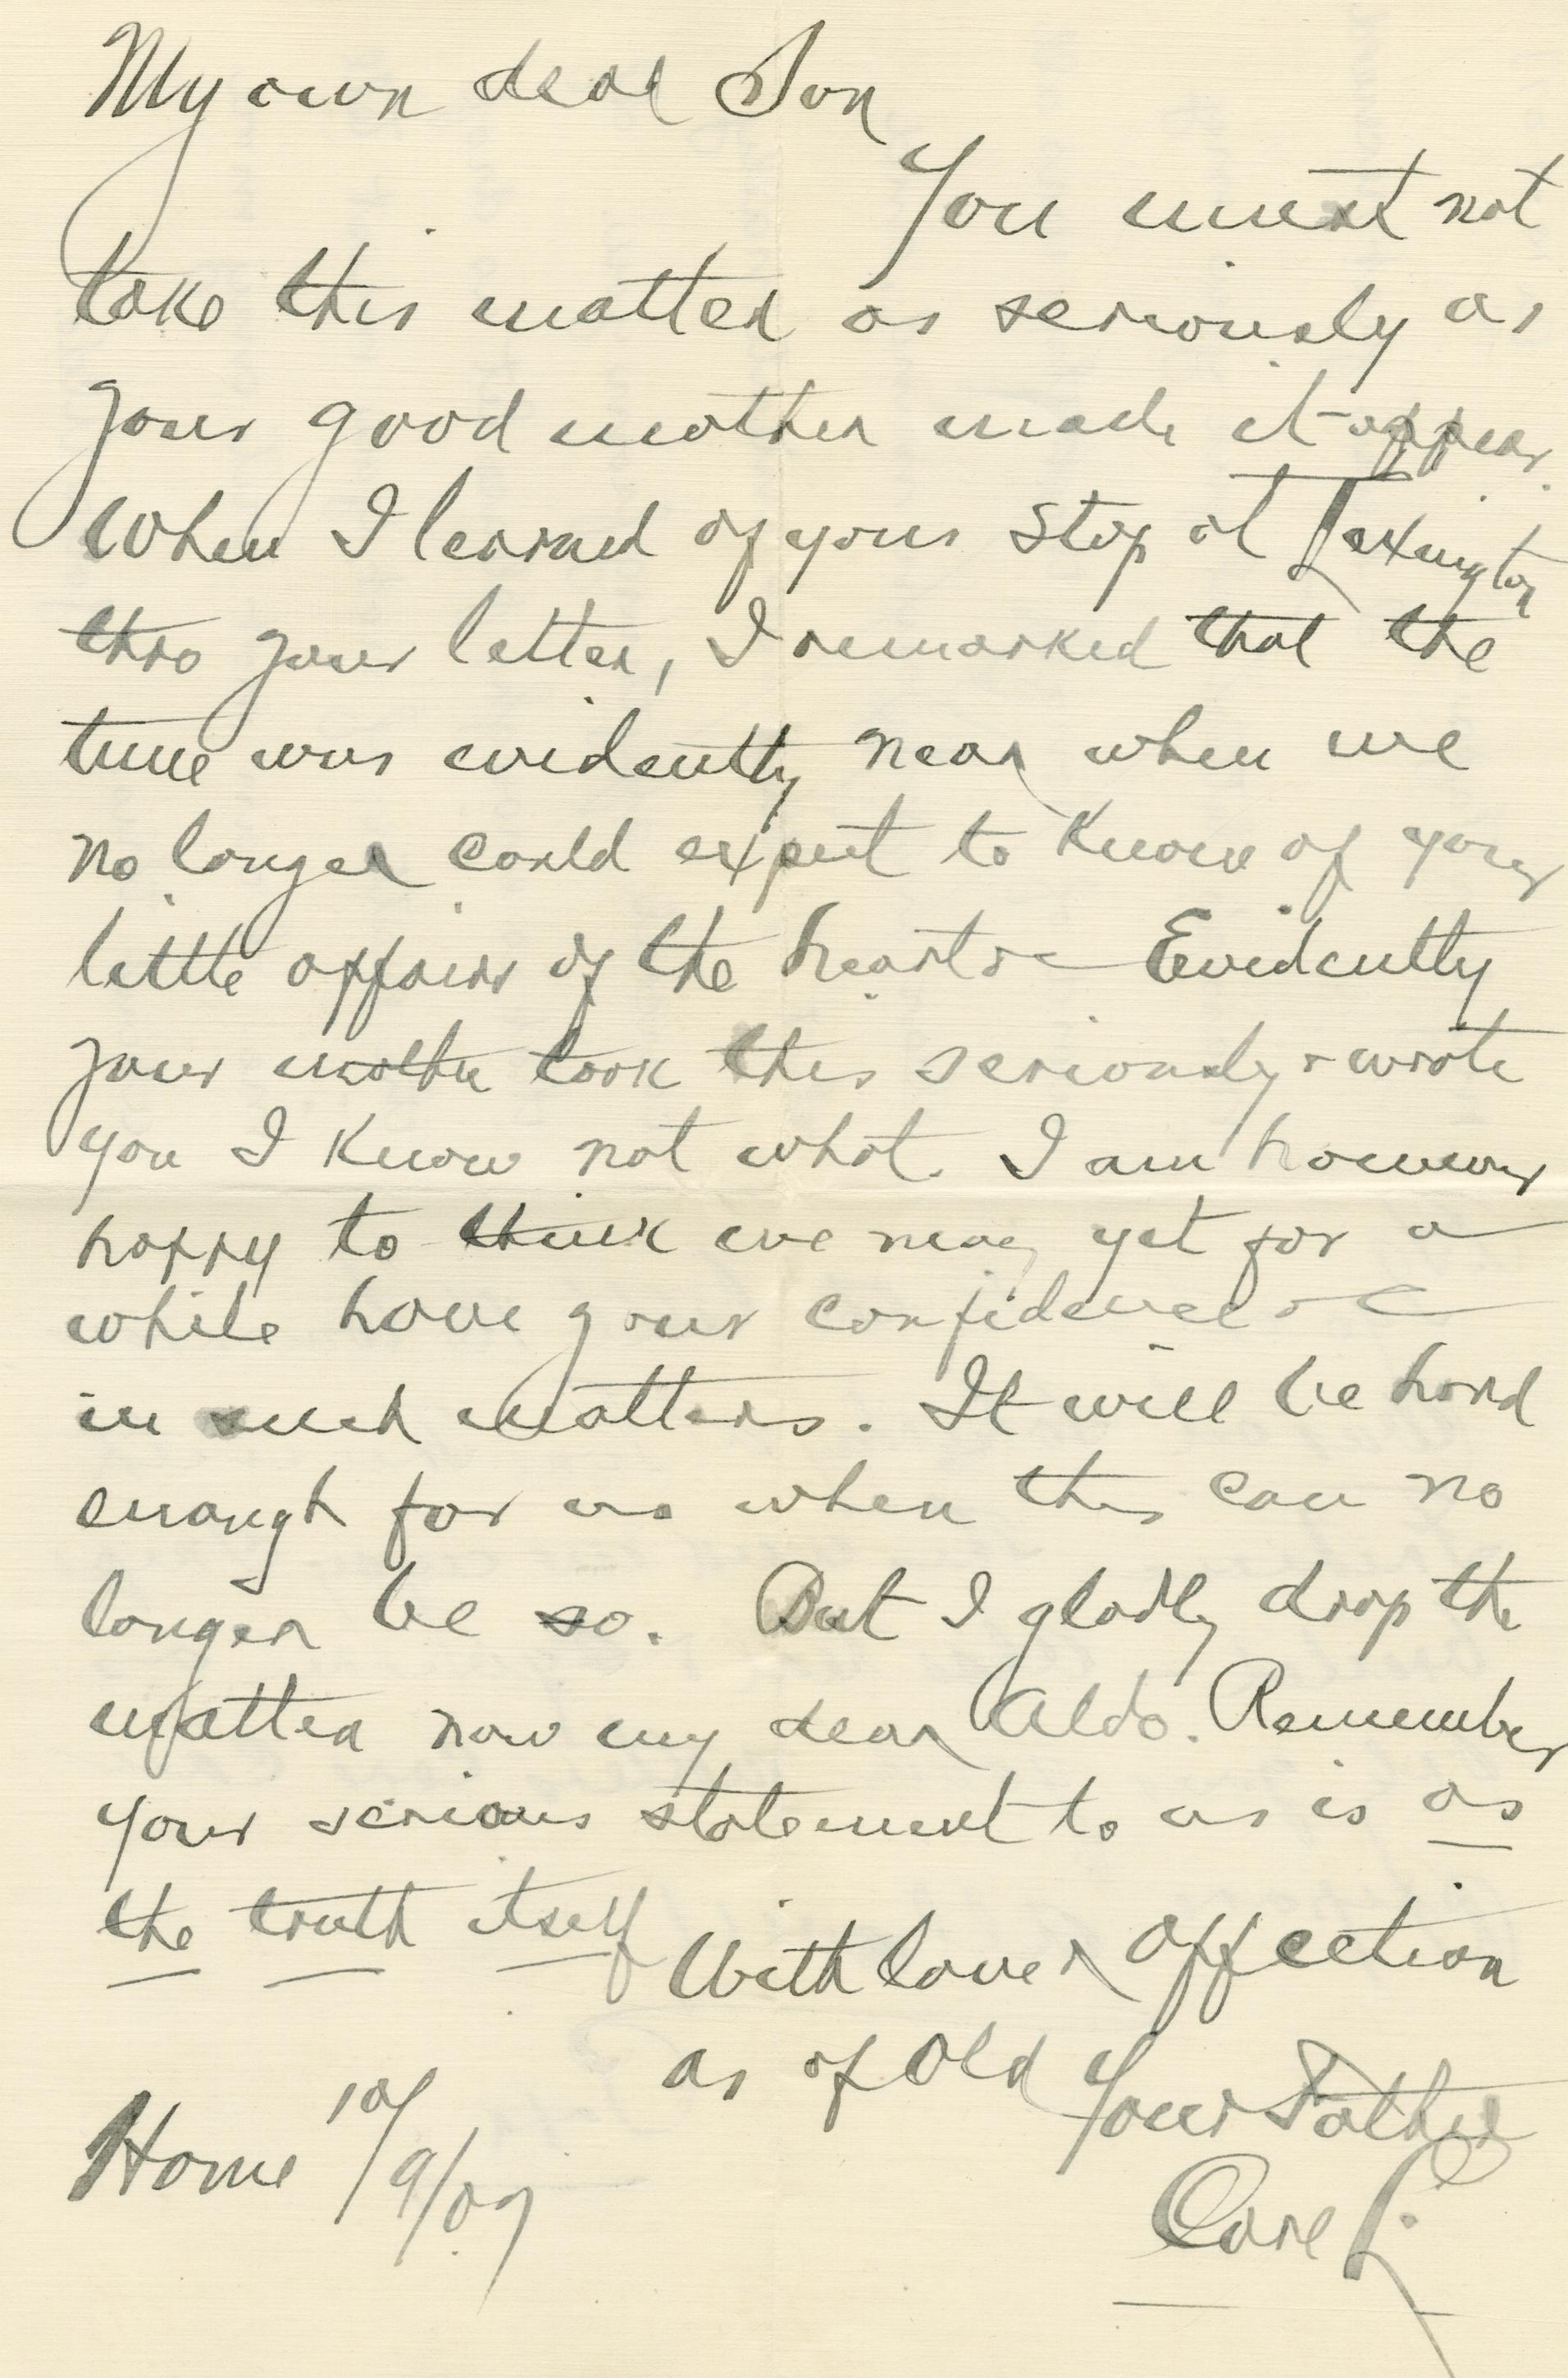 My own dear Son
You must not
take this matter as seriously as
your good mother made it appear.
When I learned of your stop at Lexington
thro your letter, I remarked that the
time was evidently near when we
no longer could expect to know of your
little affairs of the heart — Evidently
your mother took this seriously & wrote
you I know not what. I am however
happy to think we may yet for a
while have your confidence
in such matters. It will be hard
enough for us when this can no
longer be so. But I gladly drop the
matter now my dear Aldo. Remember
your serious statement to us is as
the truth itself
With love & affection
as of old Your Father
Carl L.
Home 10/9/09